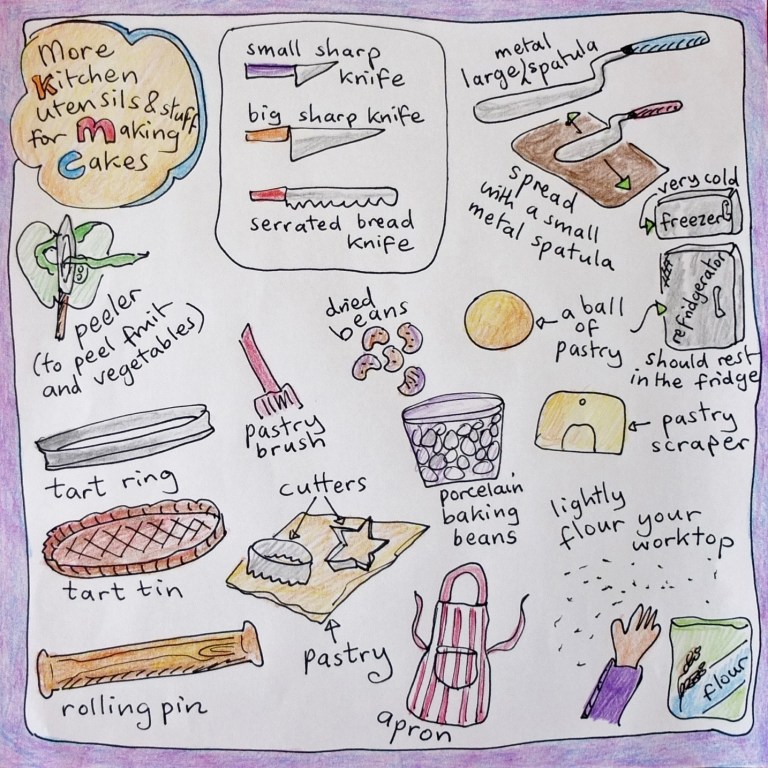 More
Kitchen
utensils & stuff
for Making
Cakes
small sharp
knife
big sharp knife
serrated bread
knife
metal
large spatula
spread
with a small
metal spatula
very cold
freezer
refridgerator
should rest
in the fridge
peeler
(to peel fruit
and vegetables)
dried
beans
a ball
of
pastry
pastry
brush
pastry
scraper
tart ring
cutters
porcelain
baking
beans
lightly
flour your
worktop
tart tin
pastry
rolling pin
apron
flour